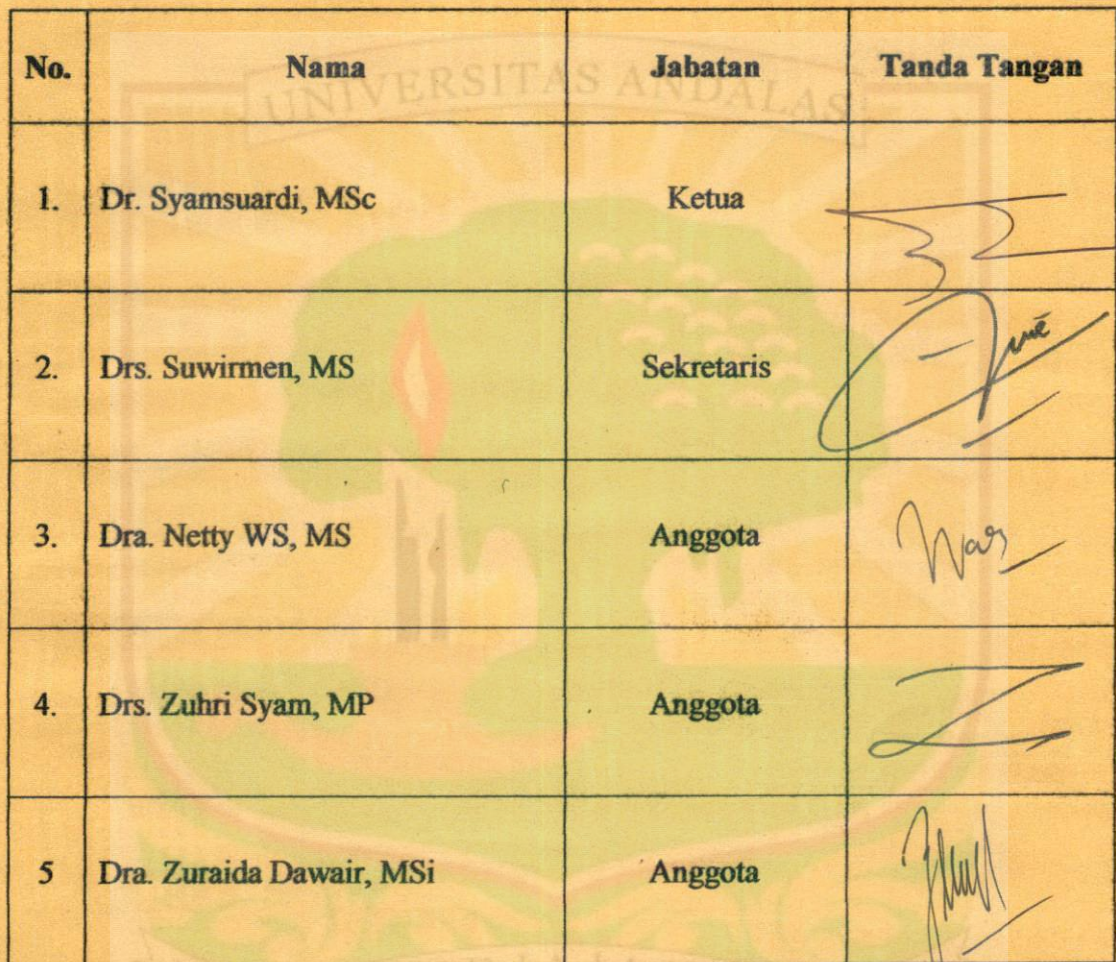 No. Nama Jabatan Tanda Tangan
UNIVERSITAS ANDALAS
1. Dr. Syamsuardi, MSc Ketua
2. Drs. Suwirmen, MS Sekretaris
3. Dra. Netty WS, MS Anggota
4. Drs. Zuhri Syam, MP Anggota
5 Dra. Zuraida Dawair, MSi Anggota